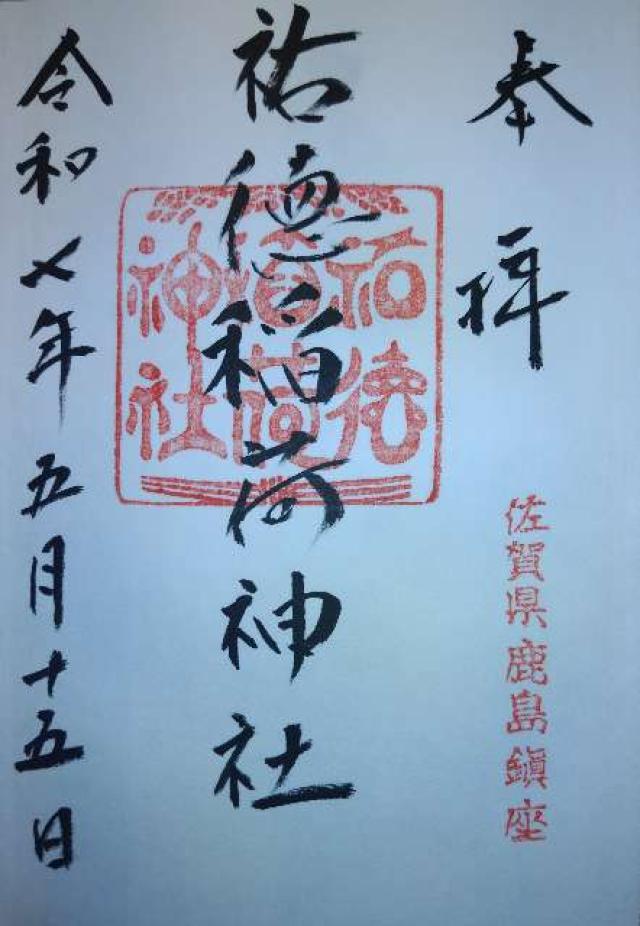 奉拝
佐賀県鹿島鎮座
祐徳稲荷神社
祐徳
稲荷
神社
令和七年五月十五日